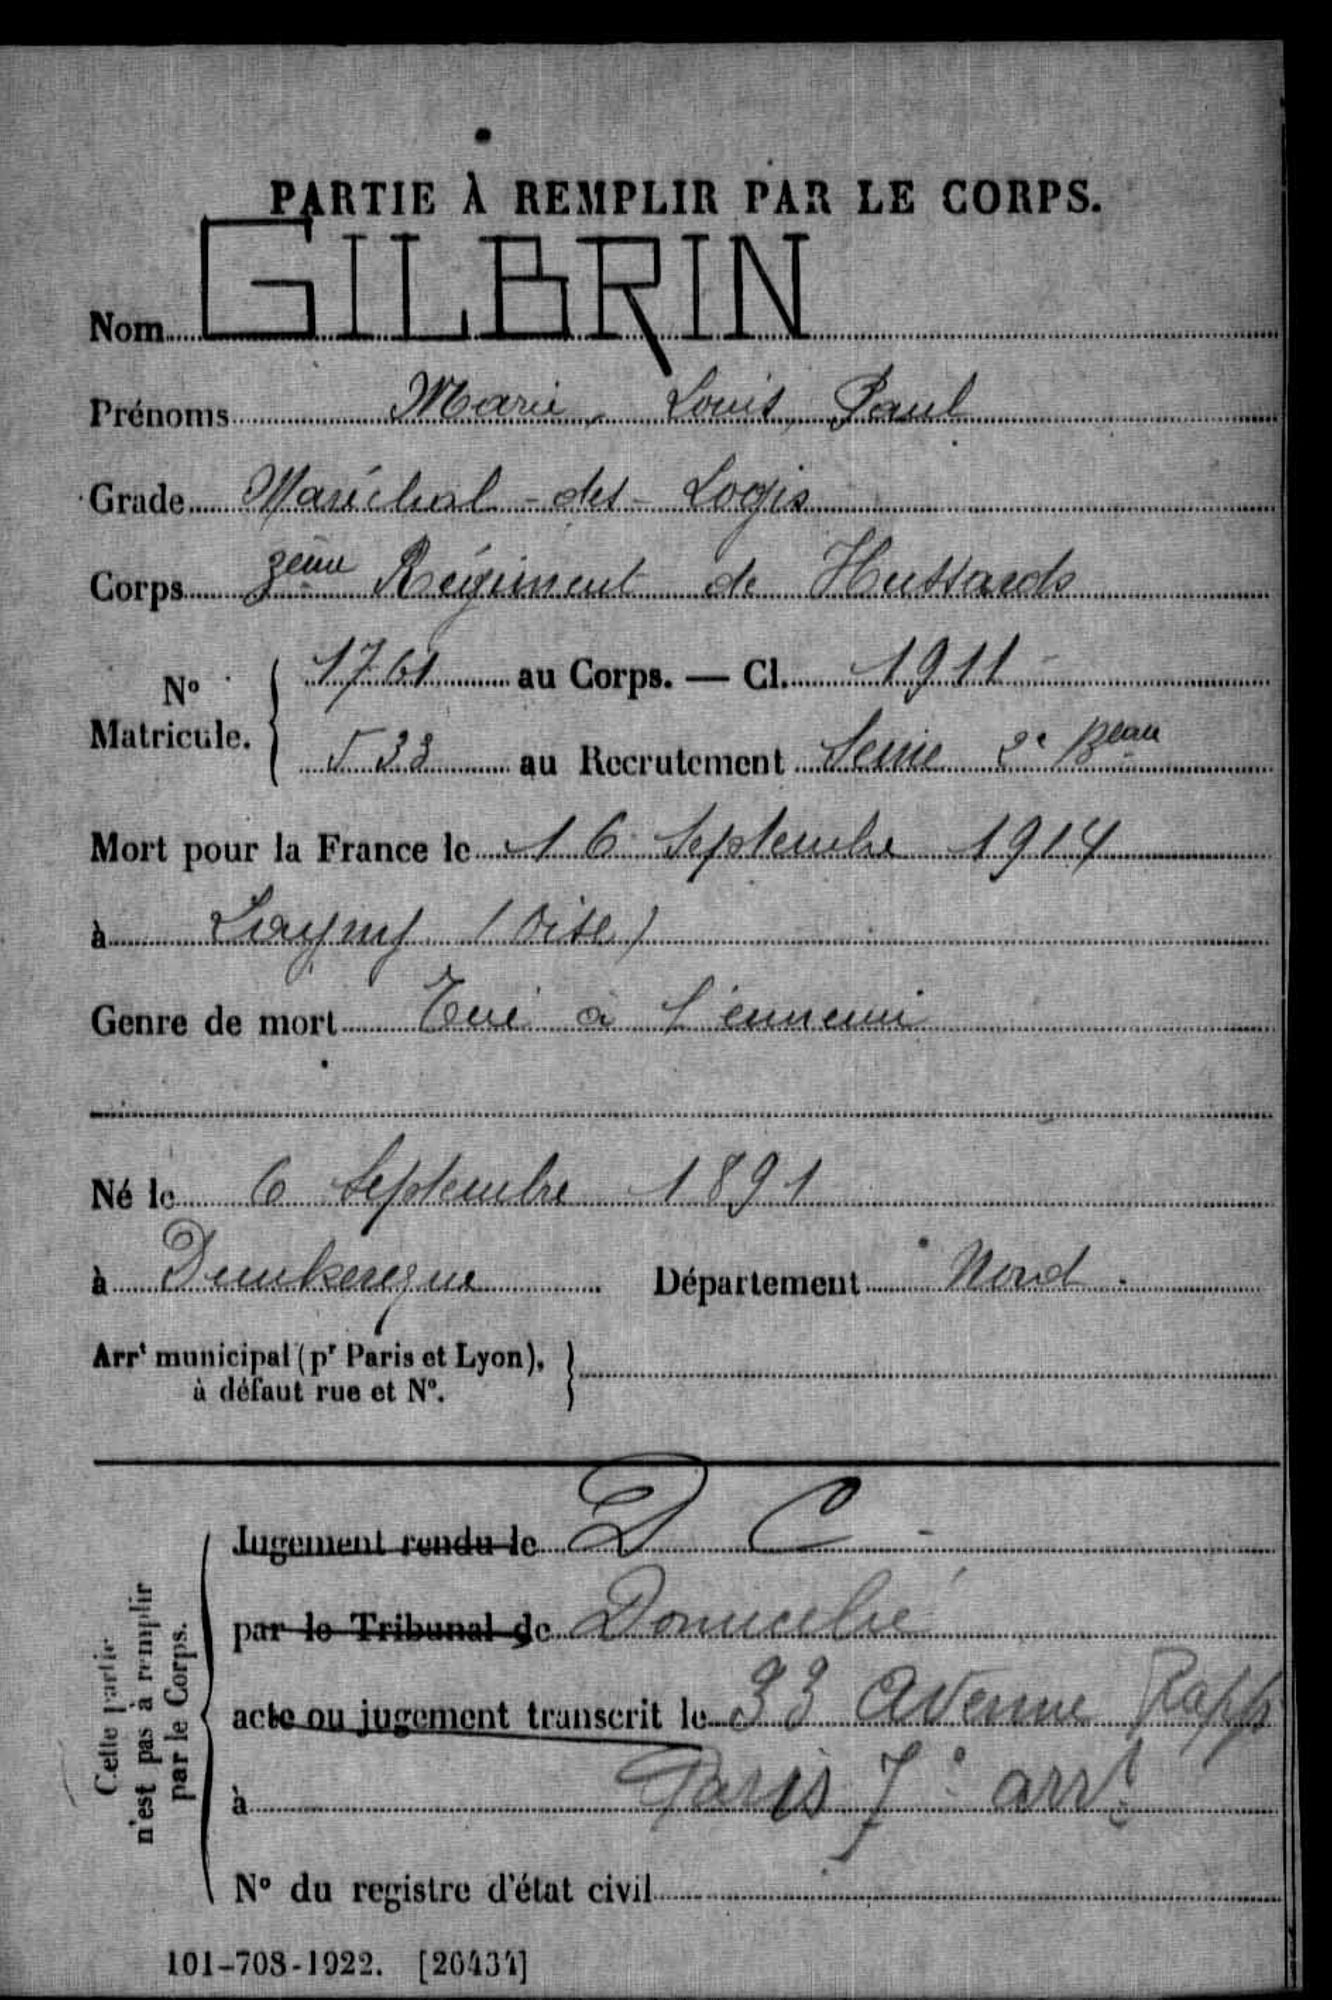 PARTIE À REMPLIR PAR LE CORPS.
Nom GILBRIN
Prénoms Marie, Louis, Paul
Grade Maréchal-des-Logis
Corps 3ème Régiment de Hussards
N° Matricule. { 1761 au Corps. — Cl. 1911
533 au Recrutement Seine 2e Beau
Mort pour la France le 16 Septembre 1914
à Lagny (Oise)
Genre de mort Tué à l'ennemi
Né le 6 Septembre 1891
à Dunkerque Département Nord.
Arrt municipal (pr Paris et Lyon), }
à défaut rue et N°.
Cette partie n'est pas à remplir par le Corps.
Jugement rendu le D C
par le Tribunal de Domicilié
acte ou jugement transcrit le 33 Avenue Rapp
à Paris 7° arrt
N° du registre d'état civil
101-708-1922. [26434]